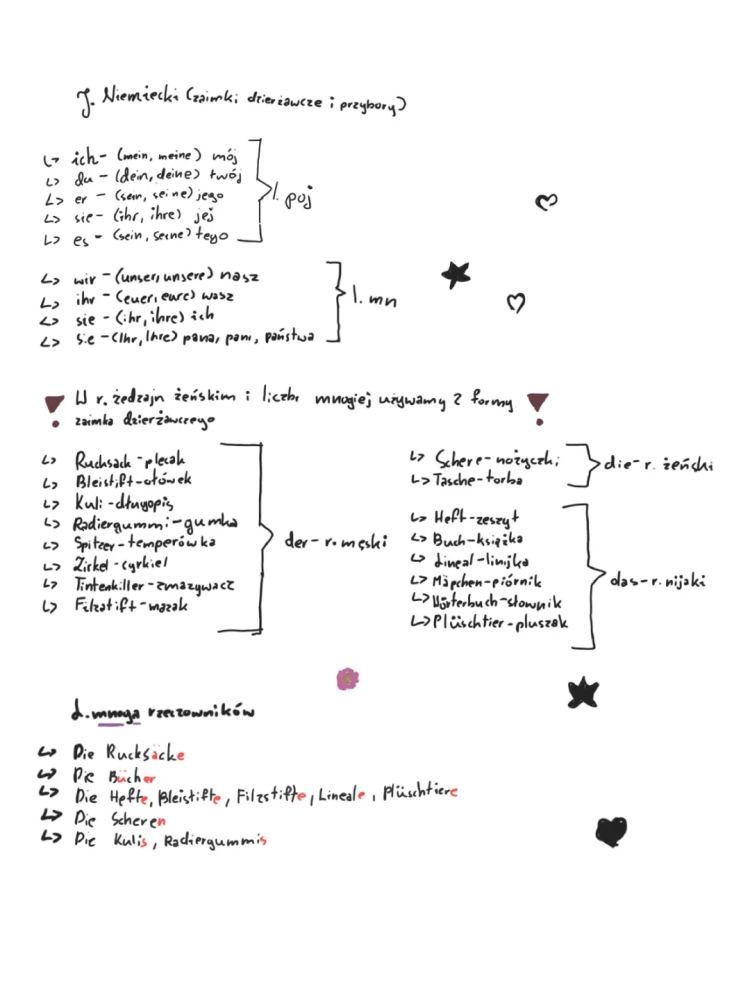 J. Niemiecki (zaimki dzierżawcze i przybory)
↳ ich - (mein, meine) mój
↳ du - (dein, deine) twój
↳ er - (sein, seine) jego
↳ sie - (ihr, ihre) jej
↳ es - (sein, seine) tego
l. poj
↳ wir - (unser, unsere) nasz
↳ ihr - (euer, eure) wasz
↳ sie - (ihr, ihre) ich
↳ Sie - (Ihr, Ihre) pana, pani, państwa
l. mn
! W r. żedzajn żeńskim i liczbr mnogiej używamy 2 formy !
zaimka dzierżawczego
↳ Rucksack - plecak
↳ Bleistift - ołówek
↳ Kuli - długopis
↳ Radiergummi - gumka
↳ Spitzer - temperówka
↳ Zirkel - cyrkiel
↳ Tintenkiller - zmazywacz
↳ Filzstift - mazak
der - r. męski
↳ Schere - nożyczki
↳ Tasche - torba
die - r. żeński
↳ Heft - zeszyt
↳ Buch - książka
↳ Lineal - linijka
↳ Mäpchen - piórnik
↳ Wörterbuch - słownik
↳ Plüschtier - pluszak
das - r. nijaki
L. mnoga rzeczowników
↳ Die Rucksäcke
↳ Die Bücher
↳ Die Hefte, Bleistifte, Filzstifte, Lineale, Plüschtiere
↳ Die Scheren
↳ Die Kulis, Radiergummis